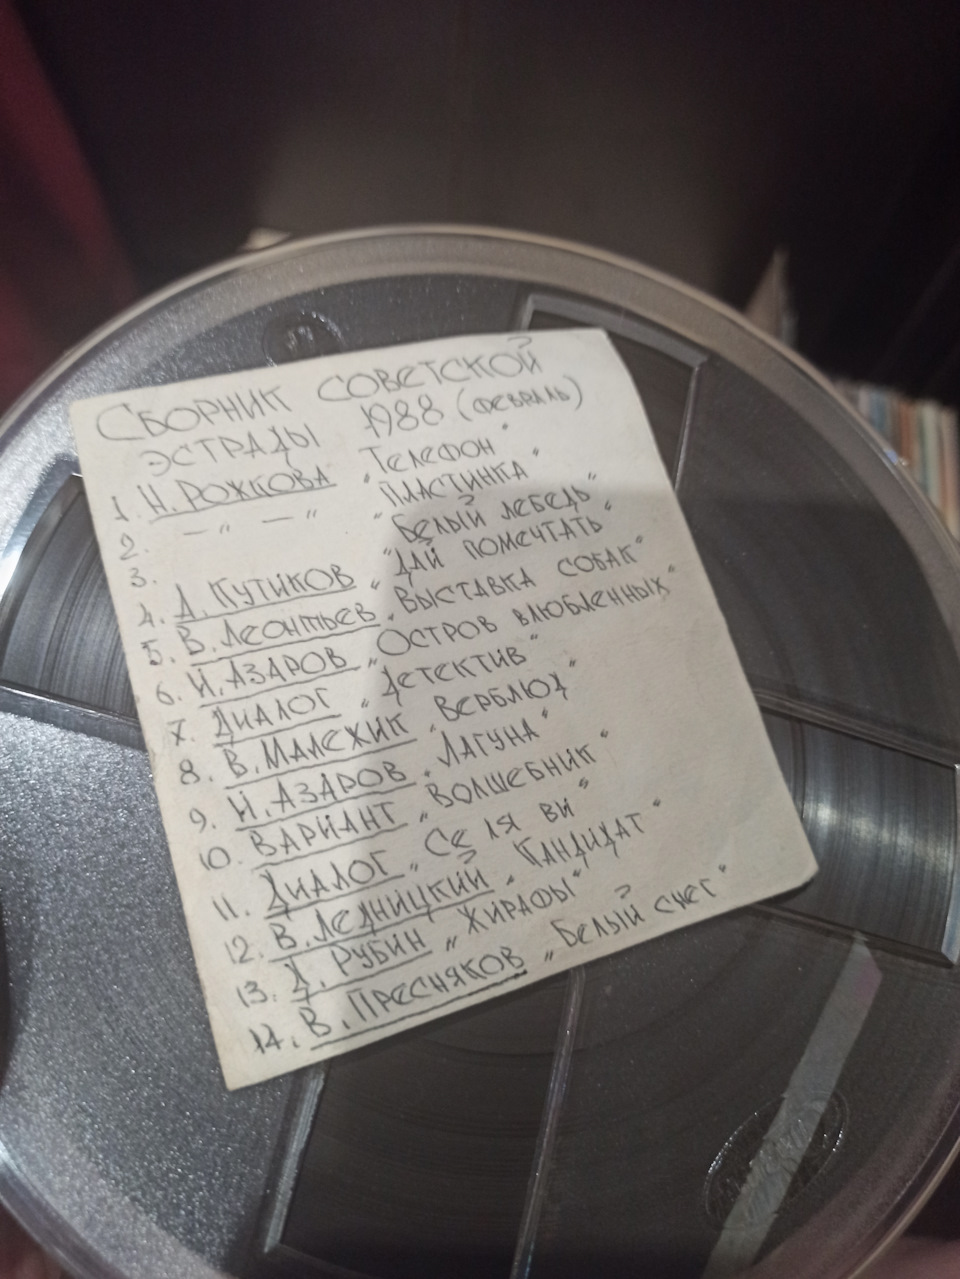 СБОРНИК СОВЕТСКОЙ
ЭСТРАДЫ 1988 (ФЕВРАЛЬ)
1. Н. РОЖКОВА "ТЕЛЕФОН"
2. — " — " "ПЛАСТИНКА"
3. "БЕЛЫЙ ЛЕБЕДЬ"
4. А. КУТИКОВ "ДАЙ ПОМЕЧТАТЬ"
5. В. ЛЕОНТЬЕВ "ВЫСТАВКА СОБАК"
6. И. АЗАРОВ "ОСТРОВ ВЛЮБЛЕННЫХ"
7. ДИАЛОГ "ДЕТЕКТИВ"
8. В. МАЛЕЖИК "ВЕРБЛЮД"
9. И. АЗАРОВ "ЛАГУНА"
10. ВАРИАНТ "ВОЛШЕБНИК"
11. ДИАЛОГ "СЕ ЛЯ ВИ"
12. В. ЛЕДНИЦКИЙ "КАНДИДАТ"
13. Д. РУБИН "ЖИРАФЫ"
14. В. ПРЕСНЯКОВ "БЕЛЫЙ СНЕГ"